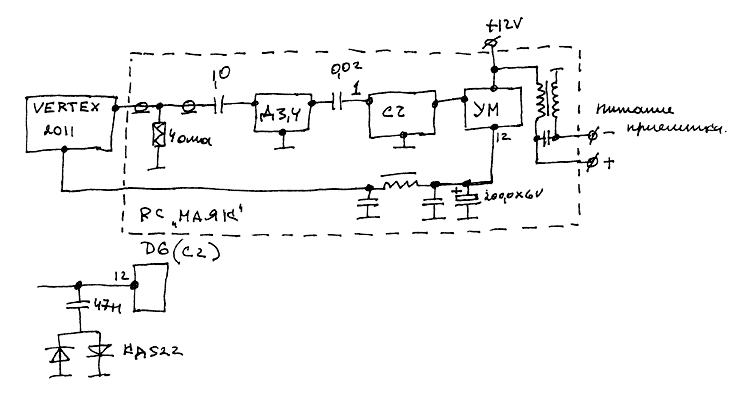 +12V
VERTEX
2011
1,0
0,02
1
Д3,4
С2
УМ
12
4 ома
Питание
приемника.
−
+
+
200,0х6V
RC „МАЯК"
D6 (С2)
12
47Н
КД522